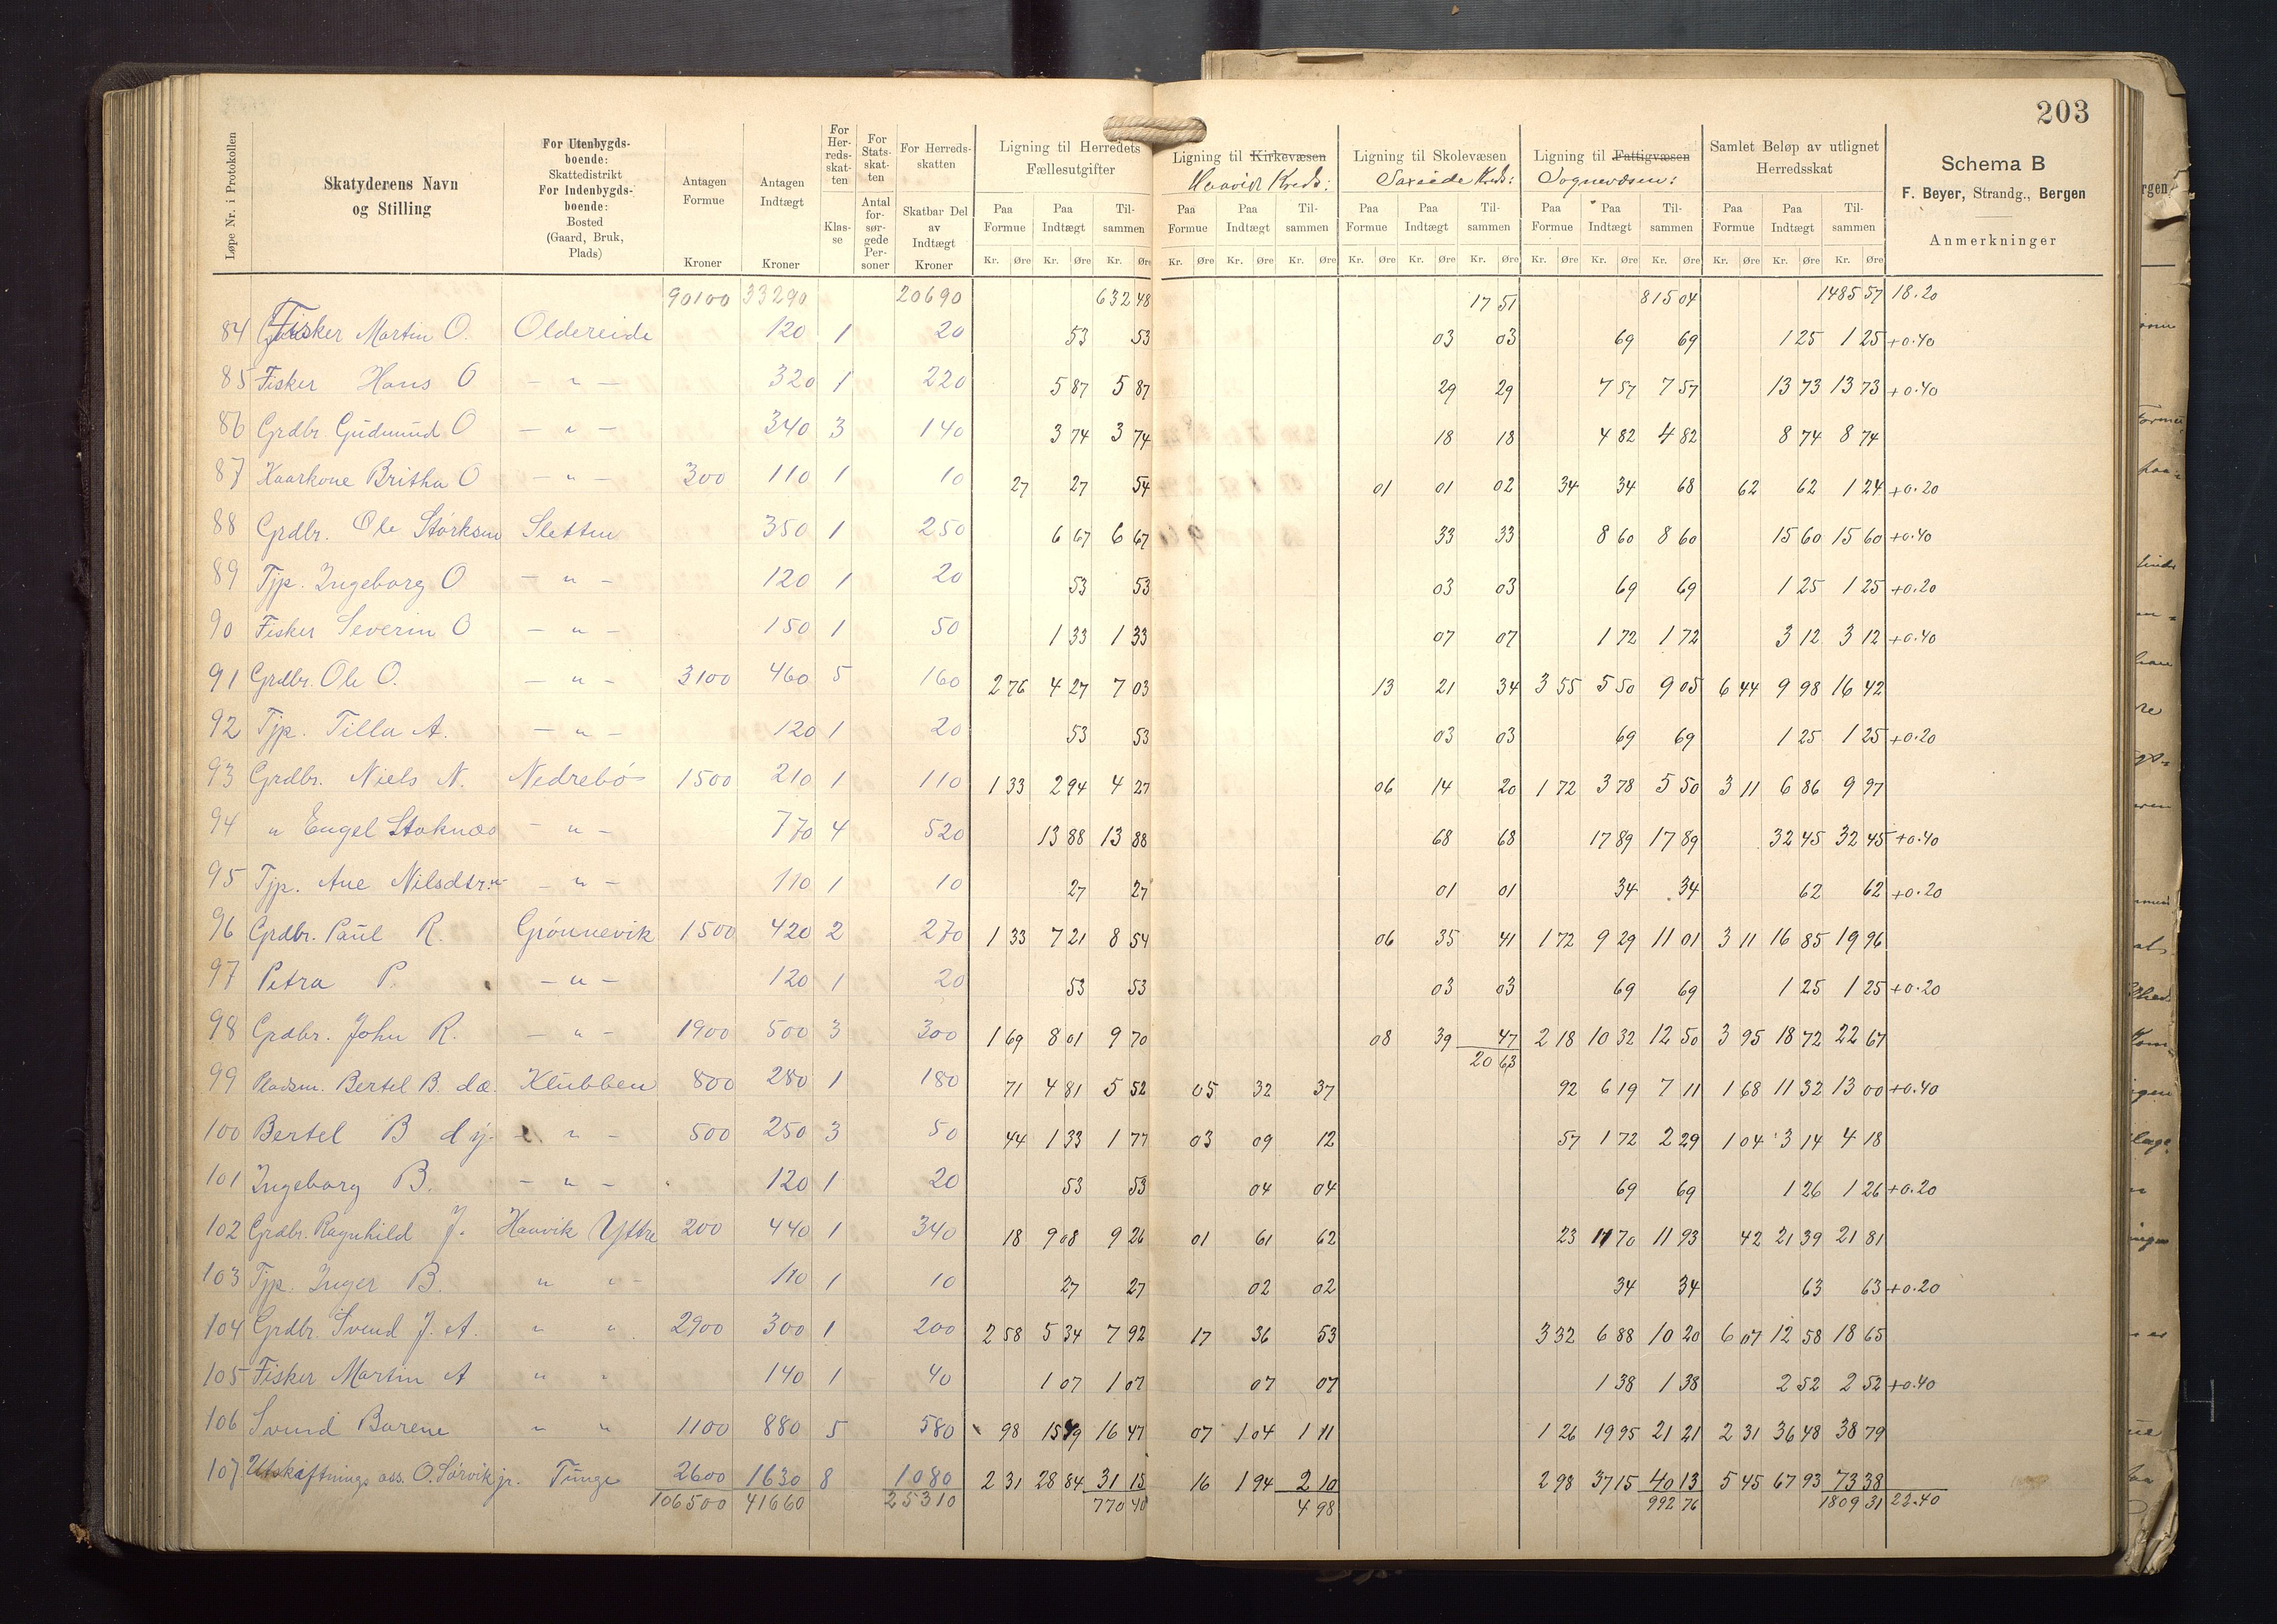 203
Løpe Nr. i Protokollen
Skatyderens Navn og Stilling
For Utenbygdsboende: Skattedistrikt For Indenbygdsboende: Bosted (Gaard, Bruk, Plads)
Antagen Formue Kroner
Antagen Indtægt Kroner
For Herredsskatten Klasse
For Statsskatten Antal forsørgede Personer
For Herredsskatten Skatbar Del av Indtægt Kroner
Ligning til Herredets Fællesutgifter
Ligning til Kirkevæsen Haavik Kreds:
Ligning til Skolevæsen Saxeide Kreds:
Ligning til Fattigvæsen Sognevæsen:
Samlet Beløp av utlignet Herredsskat
Schema B
F. Beyer, Strandg., Bergen
Anmerkninger
Paa Formue Paa Indtægt Tilsammen Paa Formue Paa Indtægt Tilsammen Paa Formue Paa Indtægt Tilsammen Paa Formue Paa Indtægt Tilsammen Paa Formue Paa Indtægt Tilsammen
Kr. Øre Kr. Øre Kr. Øre Kr. Øre Kr. Øre Kr. Øre Kr. Øre Kr. Øre Kr. Øre Kr. Øre Kr. Øre Kr. Øre Kr. Øre Kr. Øre Kr. Øre
90100 33290 20690 632 48 17 51 815 04 1485 57 18.20
84 Fisker Martin O. Oldereide 120 1 20 53 53 03 03 69 69 1 25 1 25 +0.40
85 Fisker Hans O — " — 320 1 220 5 87 5 87 29 29 7 57 7 57 13 73 13 73 +0.40
86 Grdbr. Gudmund O — " — 340 3 140 3 74 3 74 18 18 4 82 4 82 8 74 8 74
87 Kaarkone Britha O — " — 300 110 1 10 27 27 54 01 01 02 34 34 68 62 62 1 24 +0.20
88 Grdbr. Ole Störksen Sletten 350 1 250 6 67 6 67 33 33 8 60 8 60 15 60 15 60 +0.40
89 Tjp. Ingeborg O — " — 120 1 20 53 53 03 03 69 69 1 25 1 25 +0.20
90 Fisker Severin O — " — 150 1 50 1 33 1 33 07 07 1 72 1 72 3 12 3 12 +0.40
91 Grdbr. Ole O. — " — 3100 460 5 160 2 76 4 27 7 03 13 21 34 3 55 5 50 9 05 6 44 9 98 16 42
92 Tjp. Tilla A. — " — 120 1 20 53 53 03 03 69 69 1 25 1 25 +0.20
93 Grdbr. Niels N. Nedrebö 1500 210 1 110 1 33 2 94 4 27 06 14 20 1 72 3 78 5 50 3 11 6 86 9 97
94 " Engel Stoknæs — " — 770 4 520 13 88 13 88 68 68 17 89 17 89 32 45 32 45 +0.40
95 Tjp. Ane Nilsdtr. — " — 110 1 10 27 27 01 01 34 34 62 62 +0.20
96 Grdbr. Paul R. Grönnevik 1500 420 2 270 1 33 7 21 8 54 06 35 41 1 72 9 29 11 01 3 11 16 85 19 96
97 Petra P. — " — 120 1 20 53 53 03 03 69 69 1 25 1 25 +0.20
98 Grdbr. John R. — " — 1900 500 3 300 1 69 8 01 9 70 08 39 47 2 18 10 32 12 50 3 95 18 72 22 67
20 63
99 Pladsm. Bertel B. d.æ. Klubben 800 280 1 180 71 4 81 5 52 05 32 37 92 6 19 7 11 1 68 11 32 13 00 +0.40
100 Bertel B d y. — " — 500 250 3 50 44 1 33 1 77 03 09 12 57 1 72 2 29 1 04 3 14 4 18
101 Ingeborg B. — " — 120 1 20 53 53 04 04 69 69 1 26 1 26 +0.20
102 Grdbr. Ragnhild J. Haavik Yttre 200 440 1 340 18 9 08 9 26 01 61 62 23 11 70 11 93 42 21 39 21 81
103 Tjp. Inger B. " " 110 1 10 27 27 02 02 34 34 63 63 +0.20
104 Grdbr. Svend J. A. " " 2900 300 1 200 2 58 5 34 7 92 17 36 53 3 32 6 88 10 20 6 07 12 58 18 65
105 Fisker Martin A " " 140 1 40 1 07 1 07 07 07 1 38 1 38 2 52 2 52 +0.40
106 Svend Barene " " 1100 880 5 580 98 15 49 16 47 07 1 04 1 11 1 26 19 95 21 21 2 31 36 48 38 79
107 Utskiftnings ass. O. Sörvik jr. Tunge 2600 1630 8 1080 2 31 28 84 31 15 16 1 94 2 10 2 98 37 15 40 13 5 45 67 93 73 38
106500 41660 25310 770 40 4 98 992 76 1809 31 22.40